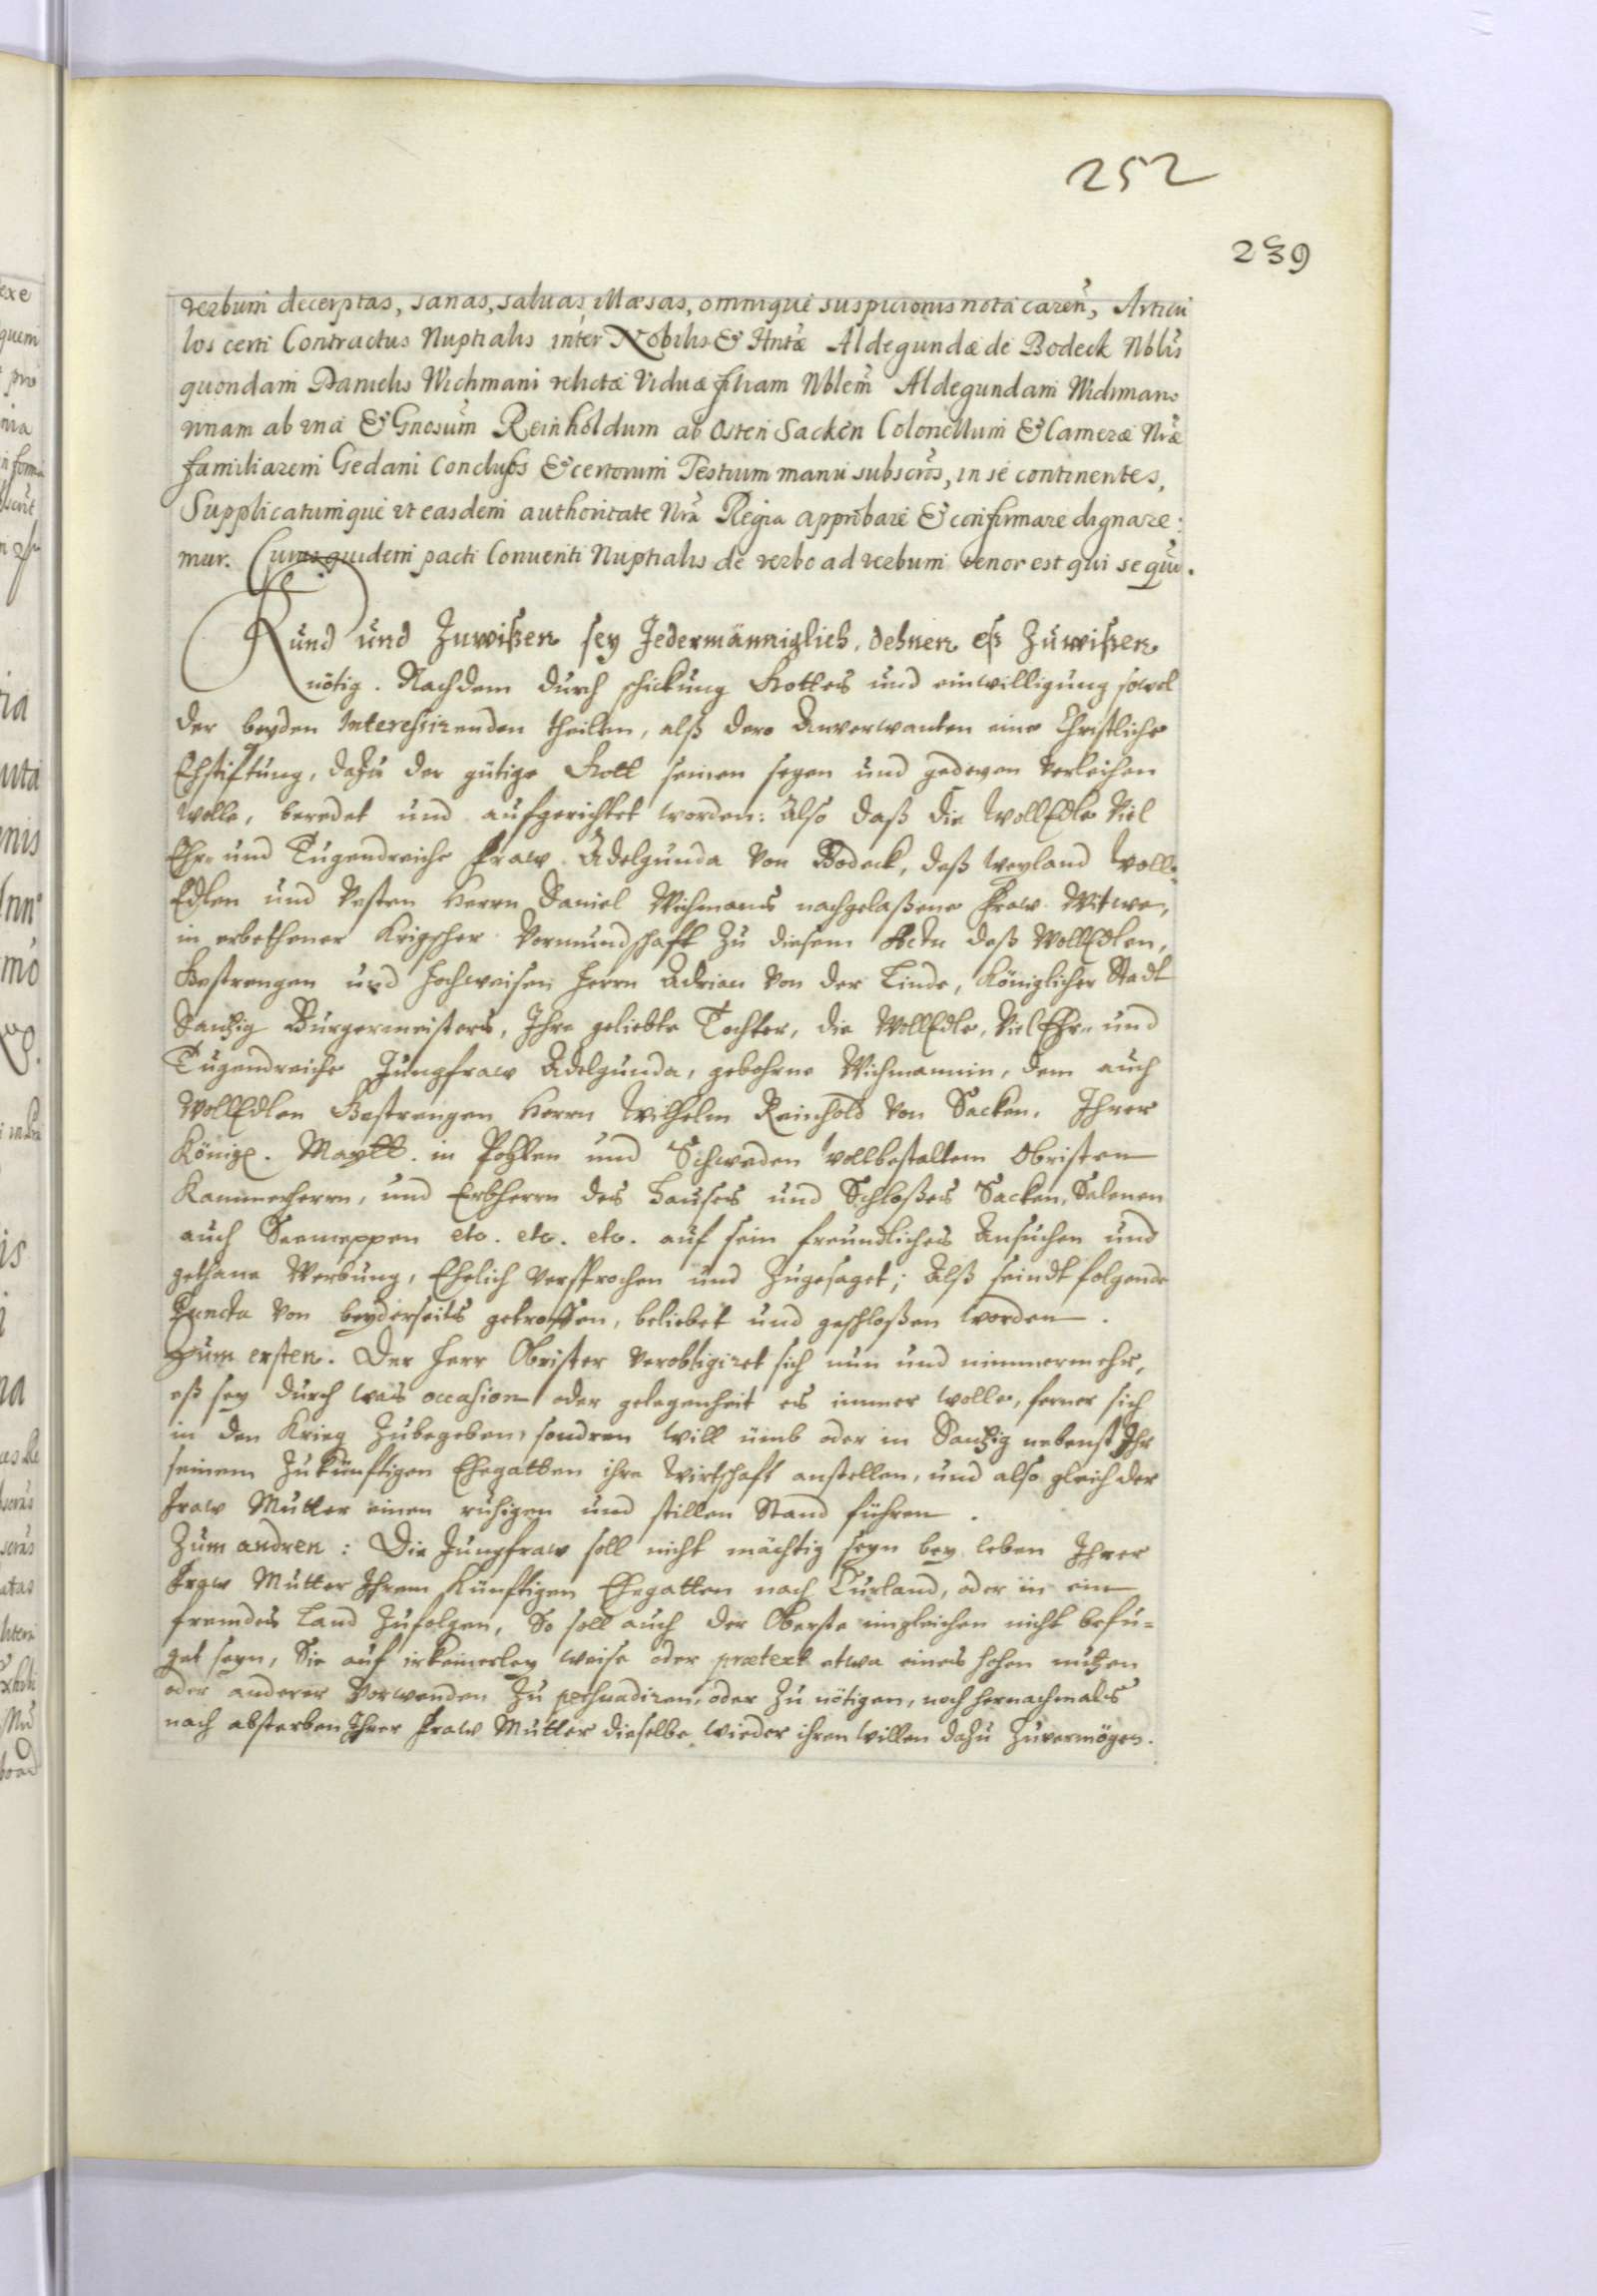 252
239
verbum decerptas, sanas, saluas, illæsas, omnique suspicionis nota careñ, Articu
los certi Contractus Nuptialis inter Nobilis & Hntæ Aldegundæ de Bodeck Nblis
quondam Danielis Wichmani relictæ Viduæ filiam Nblem Aldegundam Wichman-
ninam ab vna & Gnosum Reinholdum ab Osten Sacken Colonellum & Cameræ Nræ
familiarem Gedani Conclusos & certorum Testium manu subscros, in se continentes,
Supplicatumque vt easdem authoritate Nra Regia approbare & confirmare dignare:
mur. Cuius quidem pacti Conuenti Nuptialis de verbo ad verbum tenor est qui sequi.
Kund und Zuwißen sey Jedermänniglich, dehnen eß Zuwißen
nötig. Nachdem durch schickung Gottes und einwilligung sowol
der beyden Interessirenden theilen, alß dero Anverwanten eine Christliche
Ehstiftung, dazu der gütige Gott seinen segen und gedeyen verleihen
wolle, beredet und aufgerichtet worden: Also daß die WollEdle Viel
Ehr- und Tugendreiche Fraw Adelgunda Von Bodeck, deß weyland Woll-
Edlen und Vesten Herrn Daniel Wichmans nachgelaßene Fraw Witwe,
in erbethener Krigscher Vormundschafft zu diesem Actu deß WollEdlen,
Gestrengen und Hochweisen Herrn Adrian Von der Linde, Königlicher Stadt
Dantzig Bürgermeisters, Ihre geliebte Tochter, die WollEdle, Viel Ehr- und
Tugendreiche Jungfraw Adelgunda, gebohrne Wichmannin, dem auch
WollEdlen Gestrengen Herrn Wilhelm Reinhold Von Sacken, Ihrer
Königl. Maytt. in Pohlen und Schweden vollbestaltem Obristen
Kammerherrn, und Erbherrn des Hauses und Schloßes Sacken, Salenen
auch Seemeppen etc. etc. etc. auf sein freundliches Ansuchen und
gethane Werbung, Ehelich versprochen und Zugesaget; Alß seindt folgende
Puncta von beyderseits getroffen, beliebet und geschloßen worden.
Zum ersten. Der Herr Obrister verobligiret sich nun und nimmermehr,
eß sey durch was occasion oder gelegenheit es immer wolle, ferner sich
in den Krieg Zubegeben, sondren will ümb oder in Dantzig nebenst Ihr
seinem Zukünftigen Ehegatten ihre Wirtschaft anstellen, und also gleich der
Fraw Mutter einen ruhigen und stillen Stand führen.
Zum andren: Die Jungfraw soll nicht mächtig seyn bey leben Ihrer
Fraw Mutter Ihrem Künftigen Ehegatten nach Curland, oder in ein
fremdes Land Zufolgen, So soll auch der Oberste ingleichen nicht befu-
get seyn, Sie auf irkeinerley weise oder prætext etwa eines hohen nutzen
oder anderer Vorwenden Zu persuadiren, oder Zu nötigen, noch hernachmals
nach absterben Ihrer Fraw Mutter dieselbe wieder ihren willen dazu Zuvermögen.